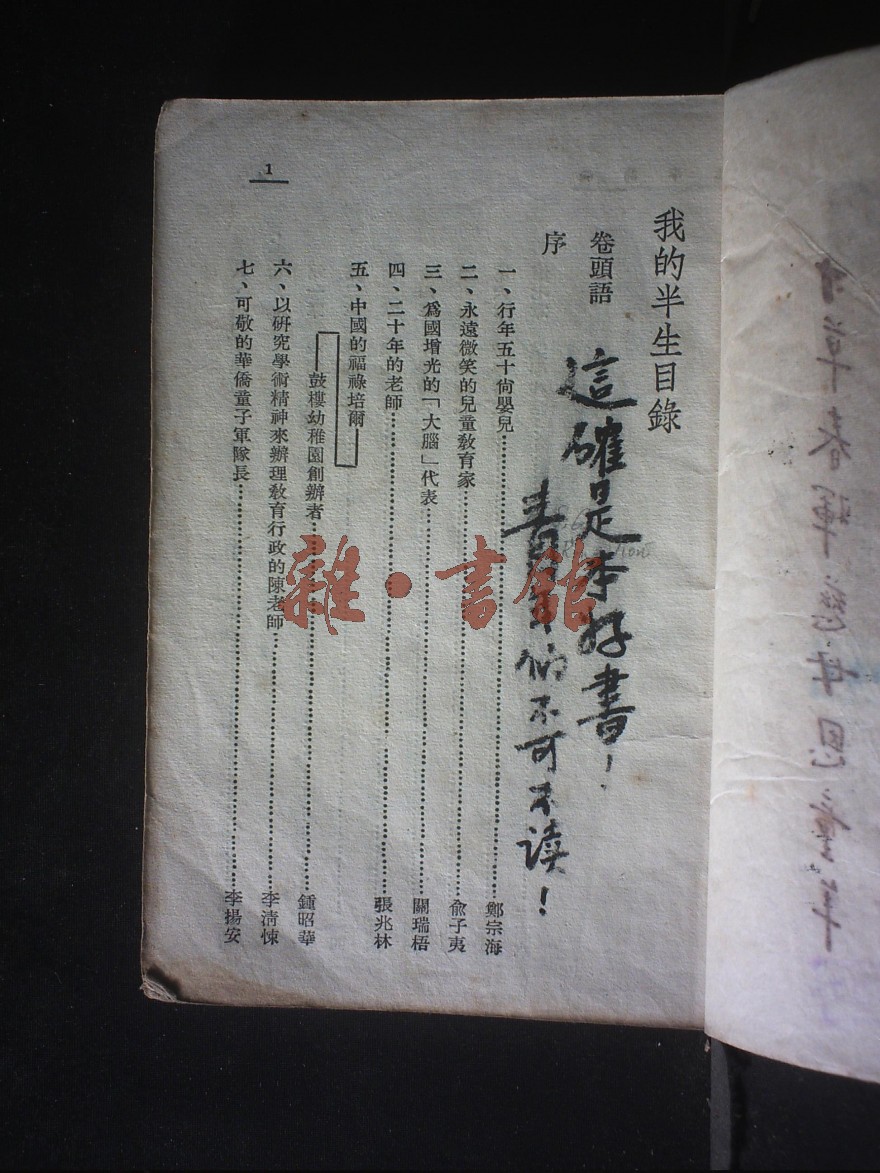 我的半生目錄
卷頭語
序
這確是本好書！
青年們不可不读！
一、行年五十尙嬰兒……鄭宗海
二、永遠微笑的兒童敎育家……兪子夷
三、爲國增光的「大腦」代表……關瑞梧
四、二十年的老師……張兆林
五、中國的福祿培爾——
——鼓樓幼稚園創辦者……鍾昭華
六、以研究學術精神來辦理敎育行政的陳老師……李淸悚
七、可敬的華僑童子軍隊長……李揚安
1
雜·書館